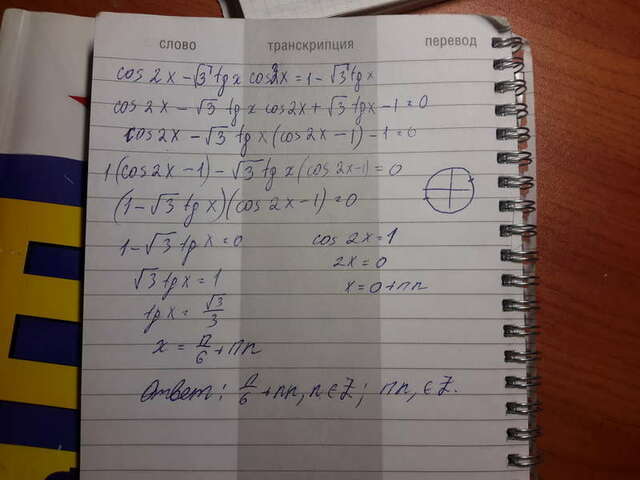 слово транскрипция перевод
cos 2x − √3 tg x cos 2x = 1 − √3 tg x
cos 2x − √3 tg x cos 2x + √3 tg x − 1 = 0
cos 2x − √3 tg x (cos 2x − 1) − 1 = 0
1(cos 2x − 1) − √3 tg x (cos 2x − 1) = 0
(1 − √3 tg x)(cos 2x − 1) = 0
1 − √3 tg x = 0 cos 2x = 1
√3 tg x = 1 2x = 0
tg x = √3/3 x = 0 + πn
x = π/6 + πn
Ответ: π/6 + πn, n ∈ Z; πn, ∈ Z.